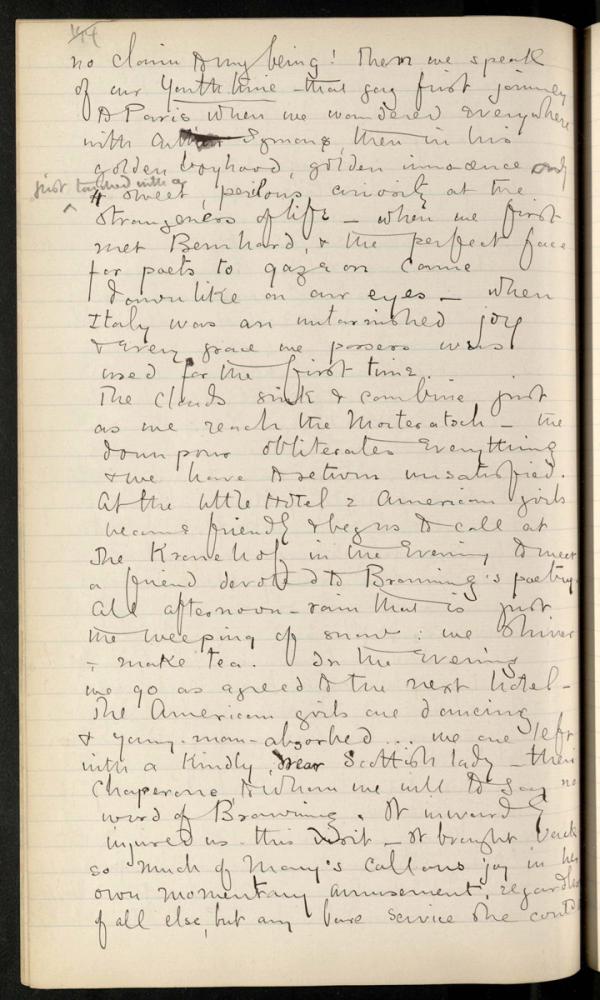 144
no claim to my being! Then we speak
of our Youth time – that gay first journey
to Paris when we wandered everywhere
with Arthur Symons, then in his
golden boyhood, golden innocence only
just touched with a
sweet, perilous curiosity at the
strangeness of life – when we first
met Bernhard, & the perfect face
for poets to gaze on came
dawnlike on our eyes – when
Italy was an untarnished joy
& every grace we possess was
used for the first time.
The clouds sink & combine just
as we reach the Morteratsch – the
downpour obliterates everything
& we have to return unsatisfied.
At the little Hotel 2 American girls
become friendly & beg us to call at
The Kronehof in the Evening to meet
a friend devoted to Browning's poetry.
All afternoon – rain that is just
the weeping of snow: we shiver
& make tea. In the evening
we go as agreed to the next hotel –
The American girls are dancing
& young-man-absorbed... we are left
with a kindly, dear Scottish lady – their
Chaperone, to whom we will to say no
word of Browning. It inwardly
injured us this visit – it brought back
so much of Mary's callous joy in her
own momentary amusement, regardless
of all else, but any bare service she could